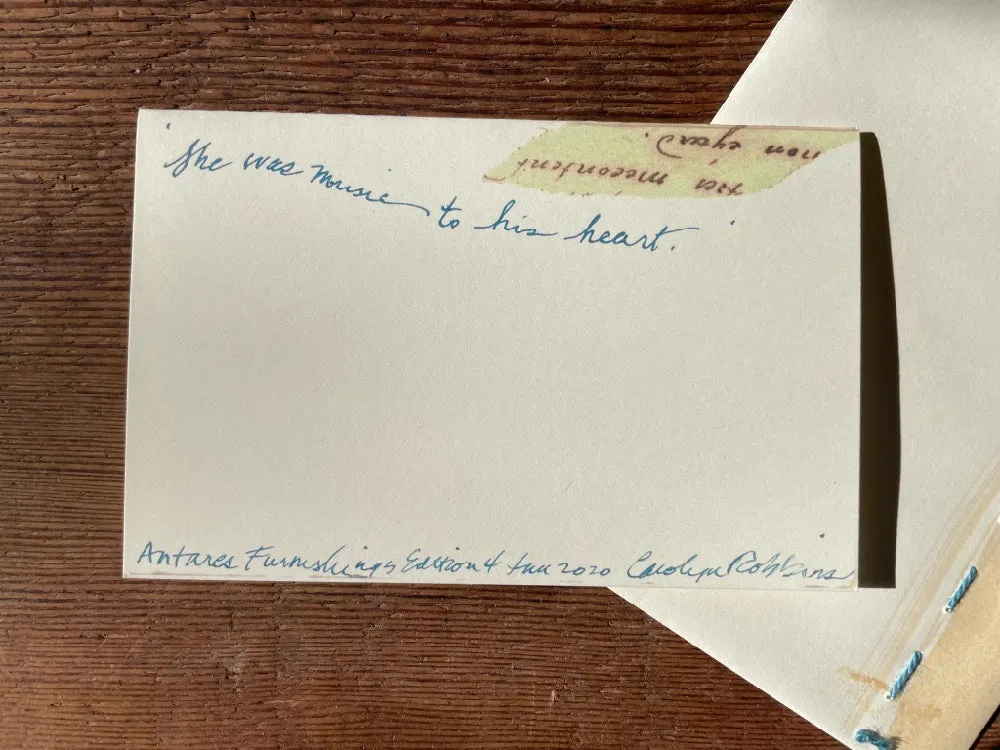 'She was music to his heart.'
non
Antares Furnishings Edition 4 Jan 2020 Carolyn Robbins